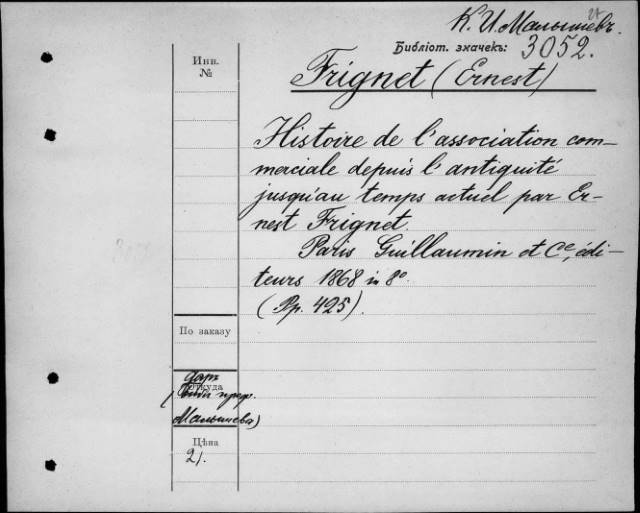 К. И. Малышевъ.
Библіот. значекъ: 3052.
Инв.
№
Frignet (Ernest)
Histoire de l'association com-
merciale depuis l'antiquité
jusqu'au temps actuel par Er-
nest Frignet.
Paris Guillaumin et Cᵉ, édi-
teurs 1868 in 8°.
(Pp. 425).
По заказу
Даръ
Откуда
Малышева)
Цѣна
2/.